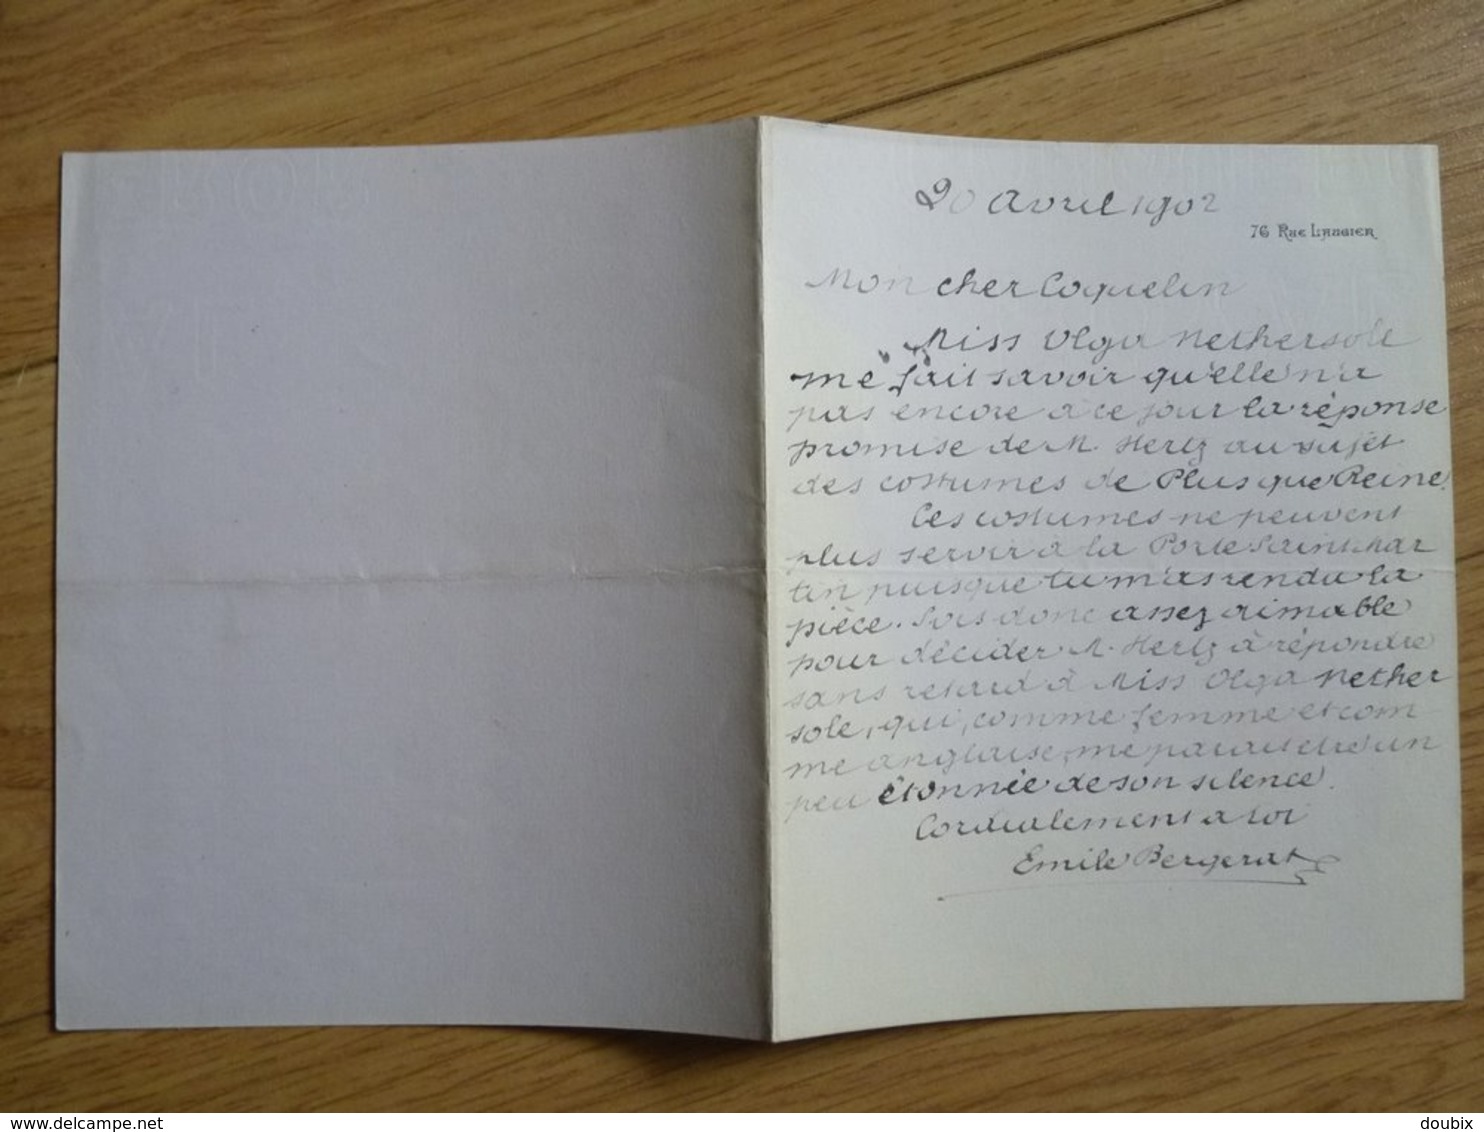 20 Avril 1902
76 Rue Laugier
Mon cher Coquelin
Miss Olga Nethersole
me fait savoir qu'elle n'a
pas encore à ce jour la réponse
promise de M. Hertz au sujet
des costumes de Plus que Reine.
Ces costumes ne peuvent
plus servir à la Porte Saint Mar
tin puisque tu m'as rendu la
pièce. Sois donc assez aimable
pour décider M. Hertz à répondre
sans retard à Miss Olga Nether
sole, qui, comme femme et com
me anglaise, me parait être un
peu étonnée de son silence.
Cordialement à toi
Emile Bergerat
delcampe.net
doubix